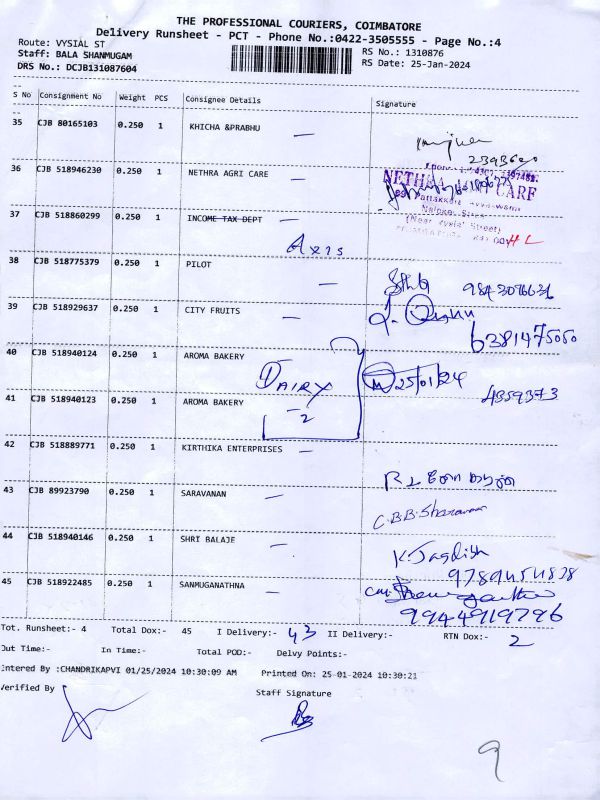 THE PROFESSIONAL COURIERS, COIMBATORE
Delivery Runsheet - PCT - Phone No.:0422-3505555 - Page No.:4
Route: VYSIAL ST
RS No.: 1310876
Staff: BALA SHANMUGAM
RS Date: 25-Jan-2024
DRS No.: DCJB131087604
S No Consignment No Weight PCS Consignee Details Signature
35 CJB 80165103 0.250 1 KHICHA &PRABHU —
2393620
36 CJB 518946230 0.250 1 NETHRA AGRI CARE —
NETHRA CARE
37 CJB 518860299 0.250 1 INCOME TAX DEPT —
(Near Vysial Street)
Axis
HL
38 CJB 518775379 0.250 1 PILOT —
9843076636
39 CJB 518929637 0.250 1 CITY FRUITS —
6381475050
40 CJB 518940124 0.250 1 AROMA BAKERY
DAIRY
25/01/24
4359373
41 CJB 518940123 0.250 1 AROMA BAKERY
2
42 CJB 518889771 0.250 1 KIRTHIKA ENTERPRISES —
43 CJB 89923790 0.250 1 SARAVANAN —
C.B.B. Sharavanan
44 CJB 518940146 0.250 1 SHRI BALAJE —
K. Jagdish
9789454838
45 CJB 518922485 0.250 1 SANMUGANATHNA —
9944919796
Tot. Runsheet:- 4 Total Dox:- 45 I Delivery:- 43 II Delivery:- RTN Dox:- 2
Out Time:- In Time:- Total POD:- Delvy Points:-
Entered By :CHANDRIKAPVI 01/25/2024 10:30:09 AM Printed On: 25-01-2024 10:30:21
Verified By
Staff Signature
9